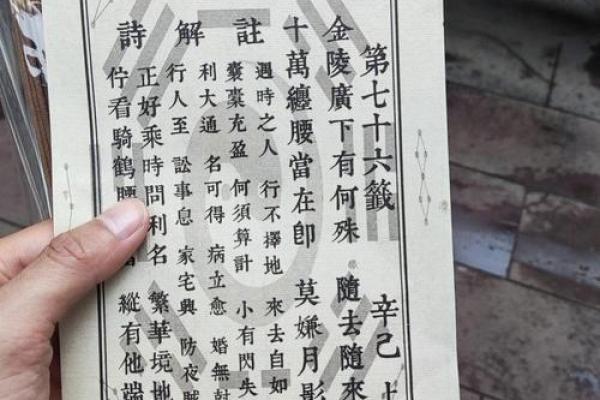 第七十六籤 辛己
金陵廣下有何殊 隨去隨來
十萬纏腰當在卽 莫嫌月影
註
遇時之人 行不擇地 來去自如
囊橐充盈 何須算計 小有閃失
解
利大通 名可得 病立愈 婚無
行人至 訟事息 家宅興 防夜賊
詩
正好乘時問利名 繁華境地
佇看騎鶴腰 縱有他端